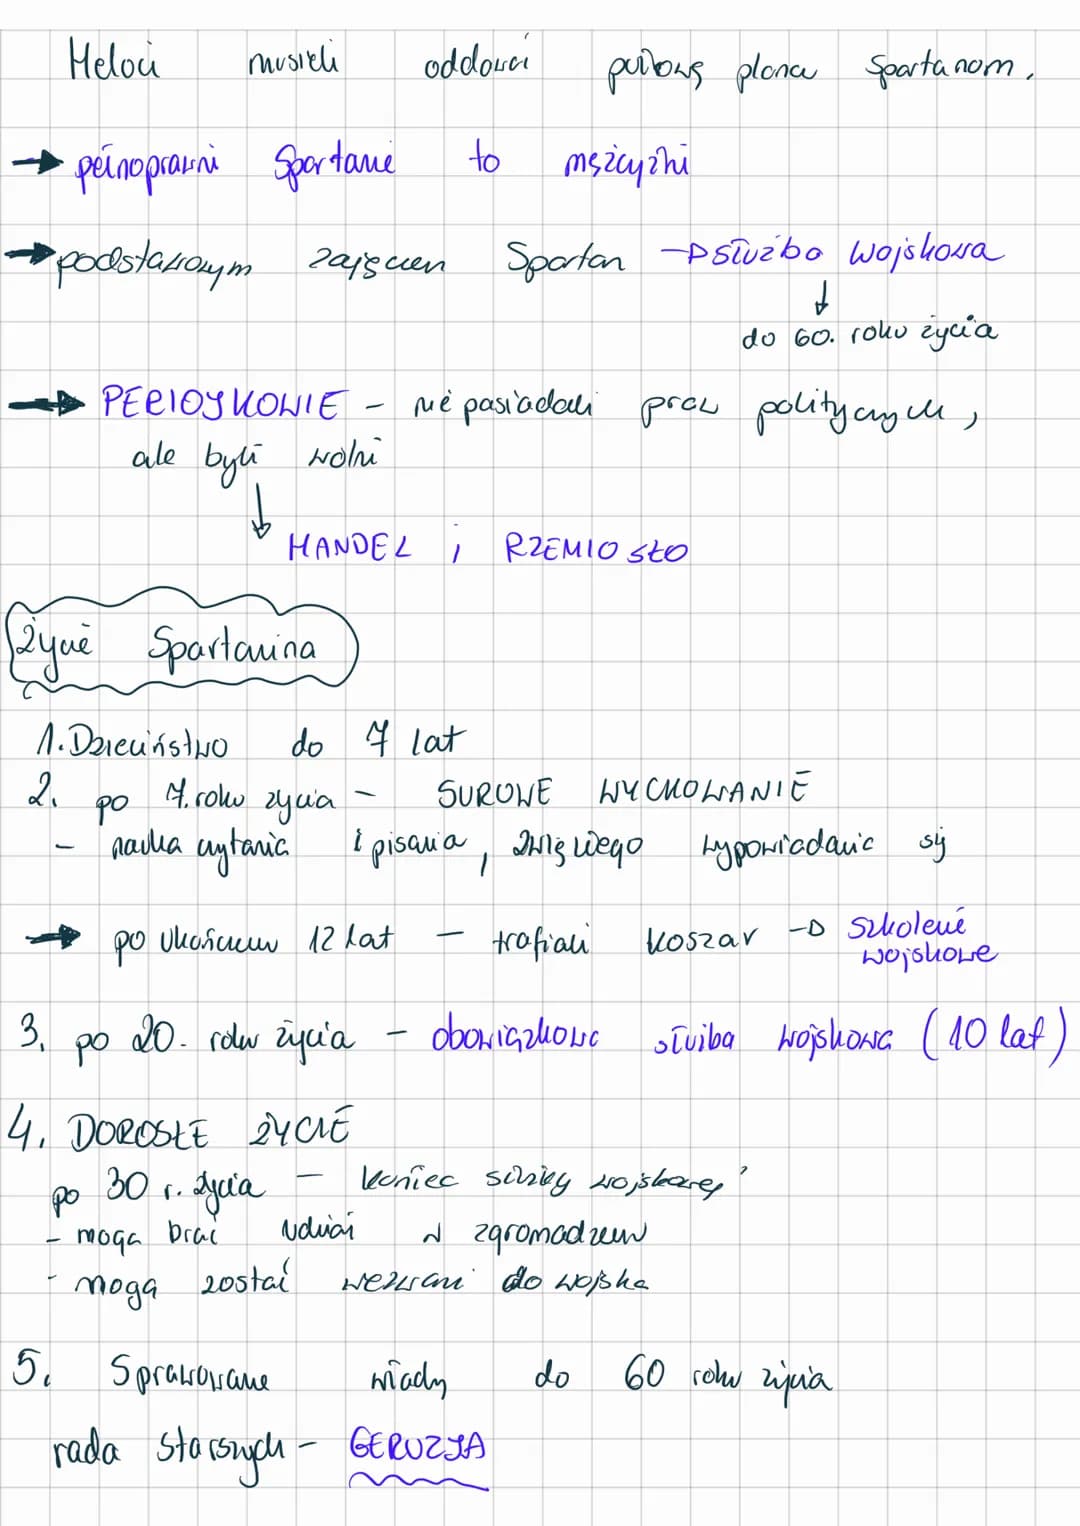 Heloci musieli oddawać połowę plonu Spartanom.
→ pełnoprawni Spartanie to mężczyźni
→ podstawowym zajęciem Spartan → służba wojskowa
↓
do 60. roku życia
→ PERIOJKOWIE - nie posiadali praw politycznych,
ale byli wolni
↓
HANDEL i RZEMIOSŁO
Życie Spartanina
1. Dzieciństwo do 7 lat
2. po 7. roku życia - SUROWE WYCHOWANIE
- nauka czytania i pisania, zwięzłego wypowiadanie się
→ po ukończeniu 12 lat - trafiali koszar → Szkolenie
wojskowe
3. po 20. roku życia - obowiązkowa służba wojskowa (10 lat)
4. DOROSŁE ŻYCIE
po 30 r. życia - koniec służby wojskowej
- mogą brać udział w zgromadzeniu
- mogą zostać wezwani do wojska
5. Sprawowanie władzy do 60 roku życia
rada starszych - GERUZJA